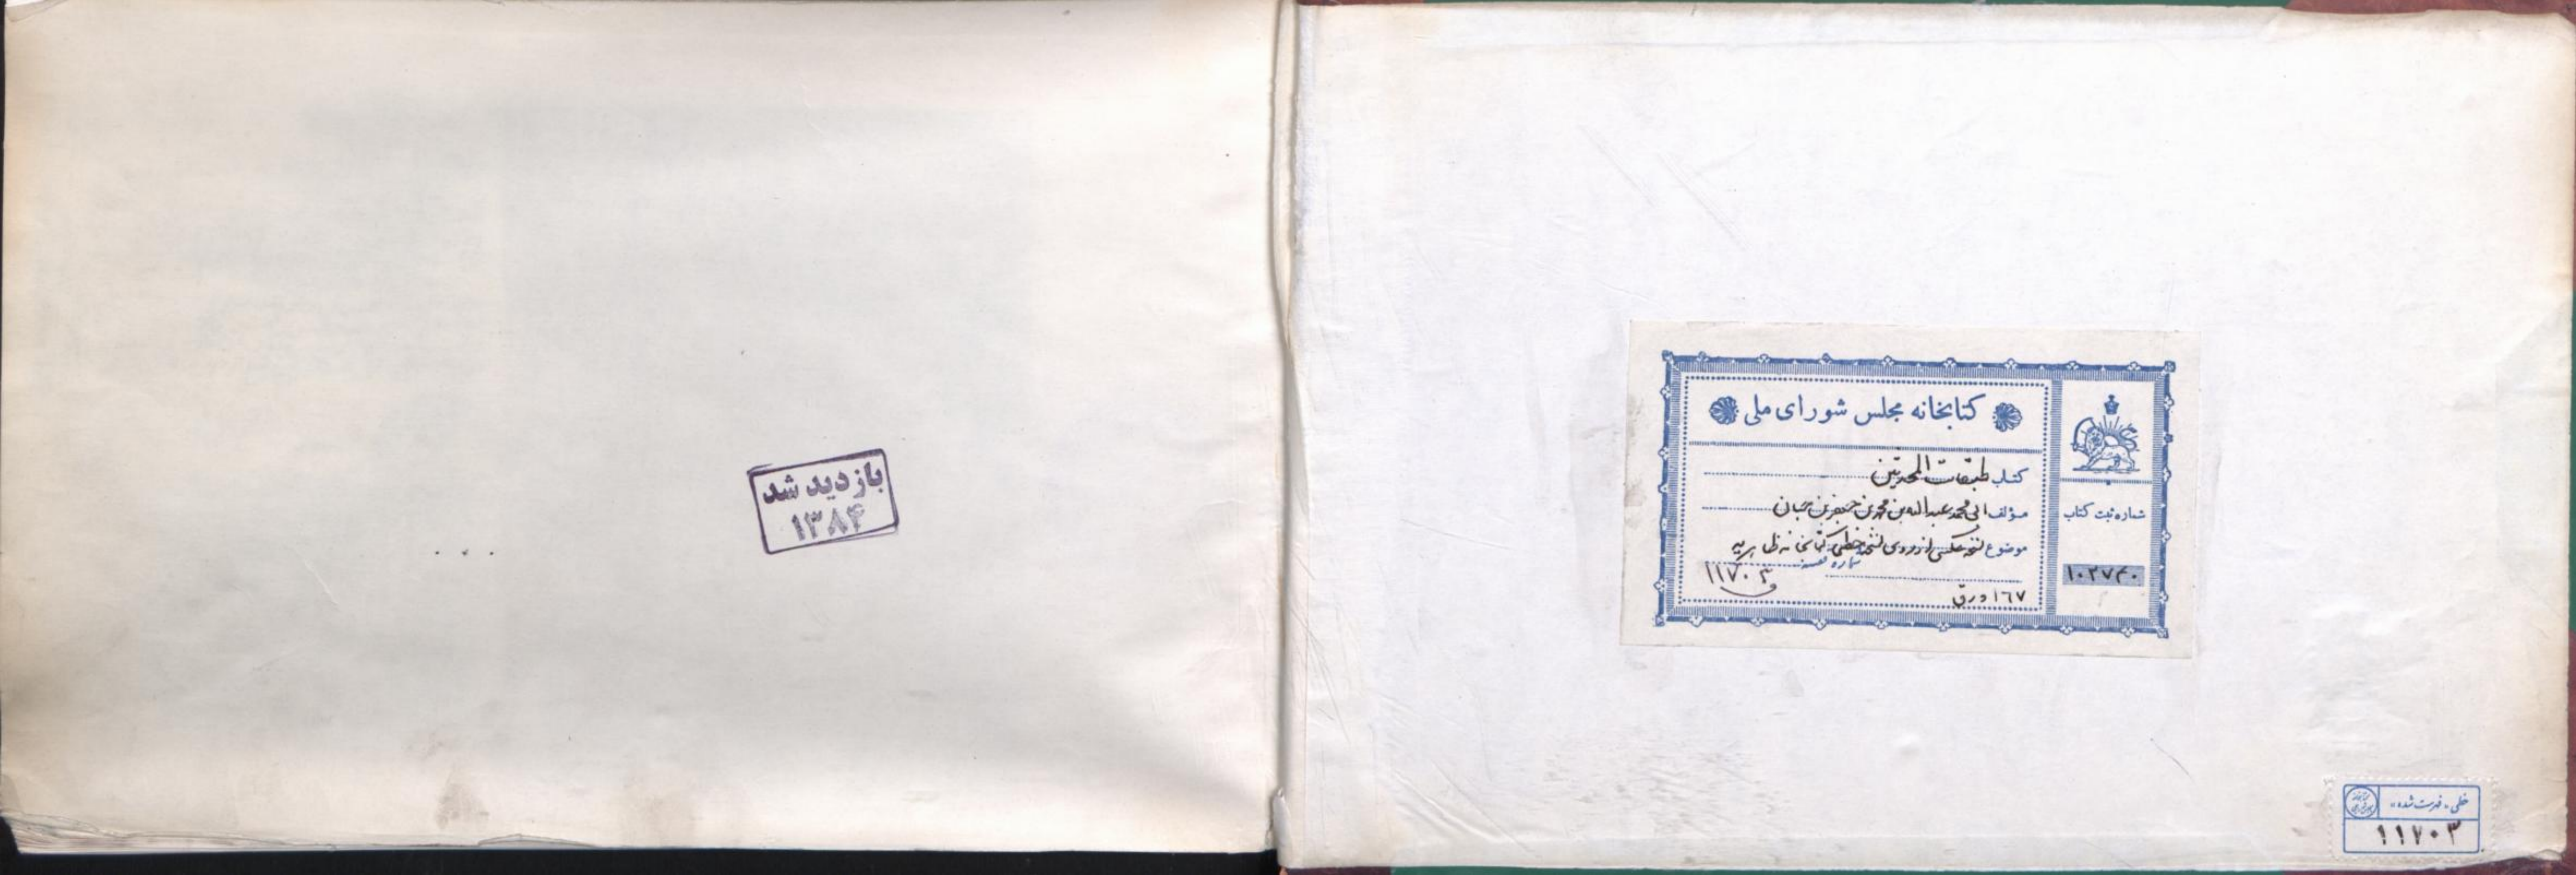 کتابخانه مجلس شورای ملی
کتاب طبقات المحدثین
مؤلف ابی محمد عبدالله بن محمد بن جعفر بن حبان
موضوع نسخه عکسی از روی نسخه خطی کتابخانه ظاهریه
شماره قفسه
۱۱۷۰۳
۱۶۷ ورق
شماره ثبت کتاب
۱۰۲۷۴۰
بازدید شد
۱۳۸۴
خطی - فهرست شده -
۱۱۷۰۳